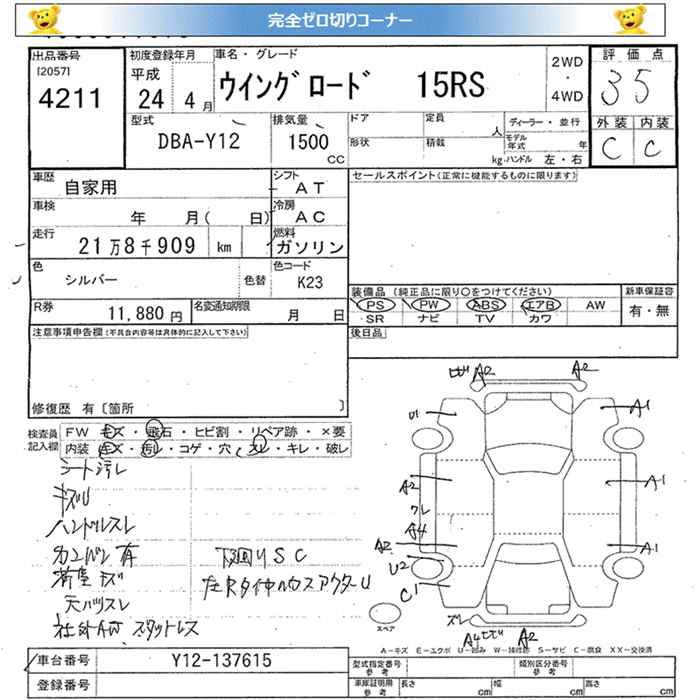 完全ゼロ切りコーナー
出品番号 初度登録年月 車名・グレード 評価点
[2057] 平成 2WD
4211 24 4月 ウイングロード 15RS ・ 35
4WD
型式 排気量 ドア 定員 人 ディーラー・並行 外装 内装
DBA-Y12 1500 CC 形状 積載 kg モデル年式 年 C C
ハンドル 左・右
車歴 自家用 シフト AT セールスポイント(正常に機能するものに限ります)
車検 年 月( 日) 冷房 AC
走行 21万8千909 km 燃料 ガソリン
色 シルバー 色替 色コード K23
装備品 (純正品に限り○をつけてください) 新車保証書
R券 11,880円 名変通知期限 月 日 PS PW ABS エアB AW 有・無
SR ナビ TV カワ
注意事項申告欄(不具合内容等は具体的に記入して下さい) 後日品
修復歴 有〔箇所 〕
検査員記入欄 FW キズ・飛石・ヒビ割・リペア跡・×要
内装 キズ・汚レ・コゲ・穴・スレ・キレ・破レ
シート汚レ
キズU
ハンドルスレ
カンバン有 下廻りSC
荷室キズ
天バリスレ
社外AW スタットレス
A2 A2
U1 A1
A2 A1
ワレ
A4
A2 A1
U2
C1
スレ
A4 A2
スペア
A-キズ E-エクボ U-凹み W-補修跡 S-サビ C-腐食 XX-交換済
車台番号 Y12-137615 型式指定番号 参考 類別区分番号 参考
登録番号 車庫証明用 参考 長さ cm 幅 cm 高さ cm